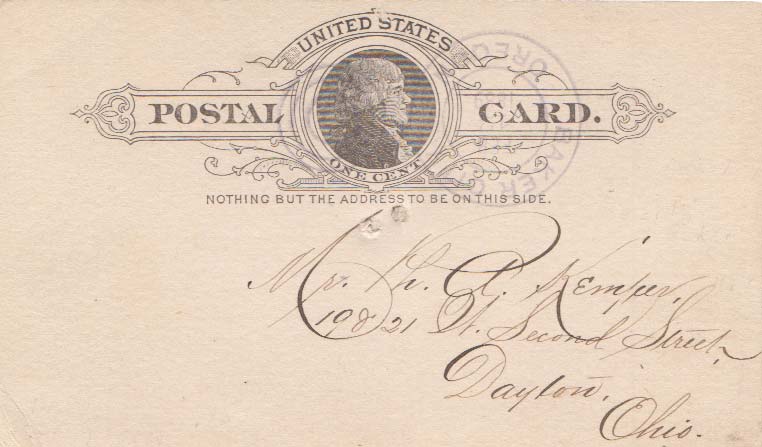 UNITED STATES
POSTAL CARD.
ONE CENT
NOTHING BUT THE ADDRESS TO BE ON THIS SIDE.
BAKER C
OREG
Mr. H. A. Kemper,
19 & 21 St. Second Street,
Dayton,
Ohio.